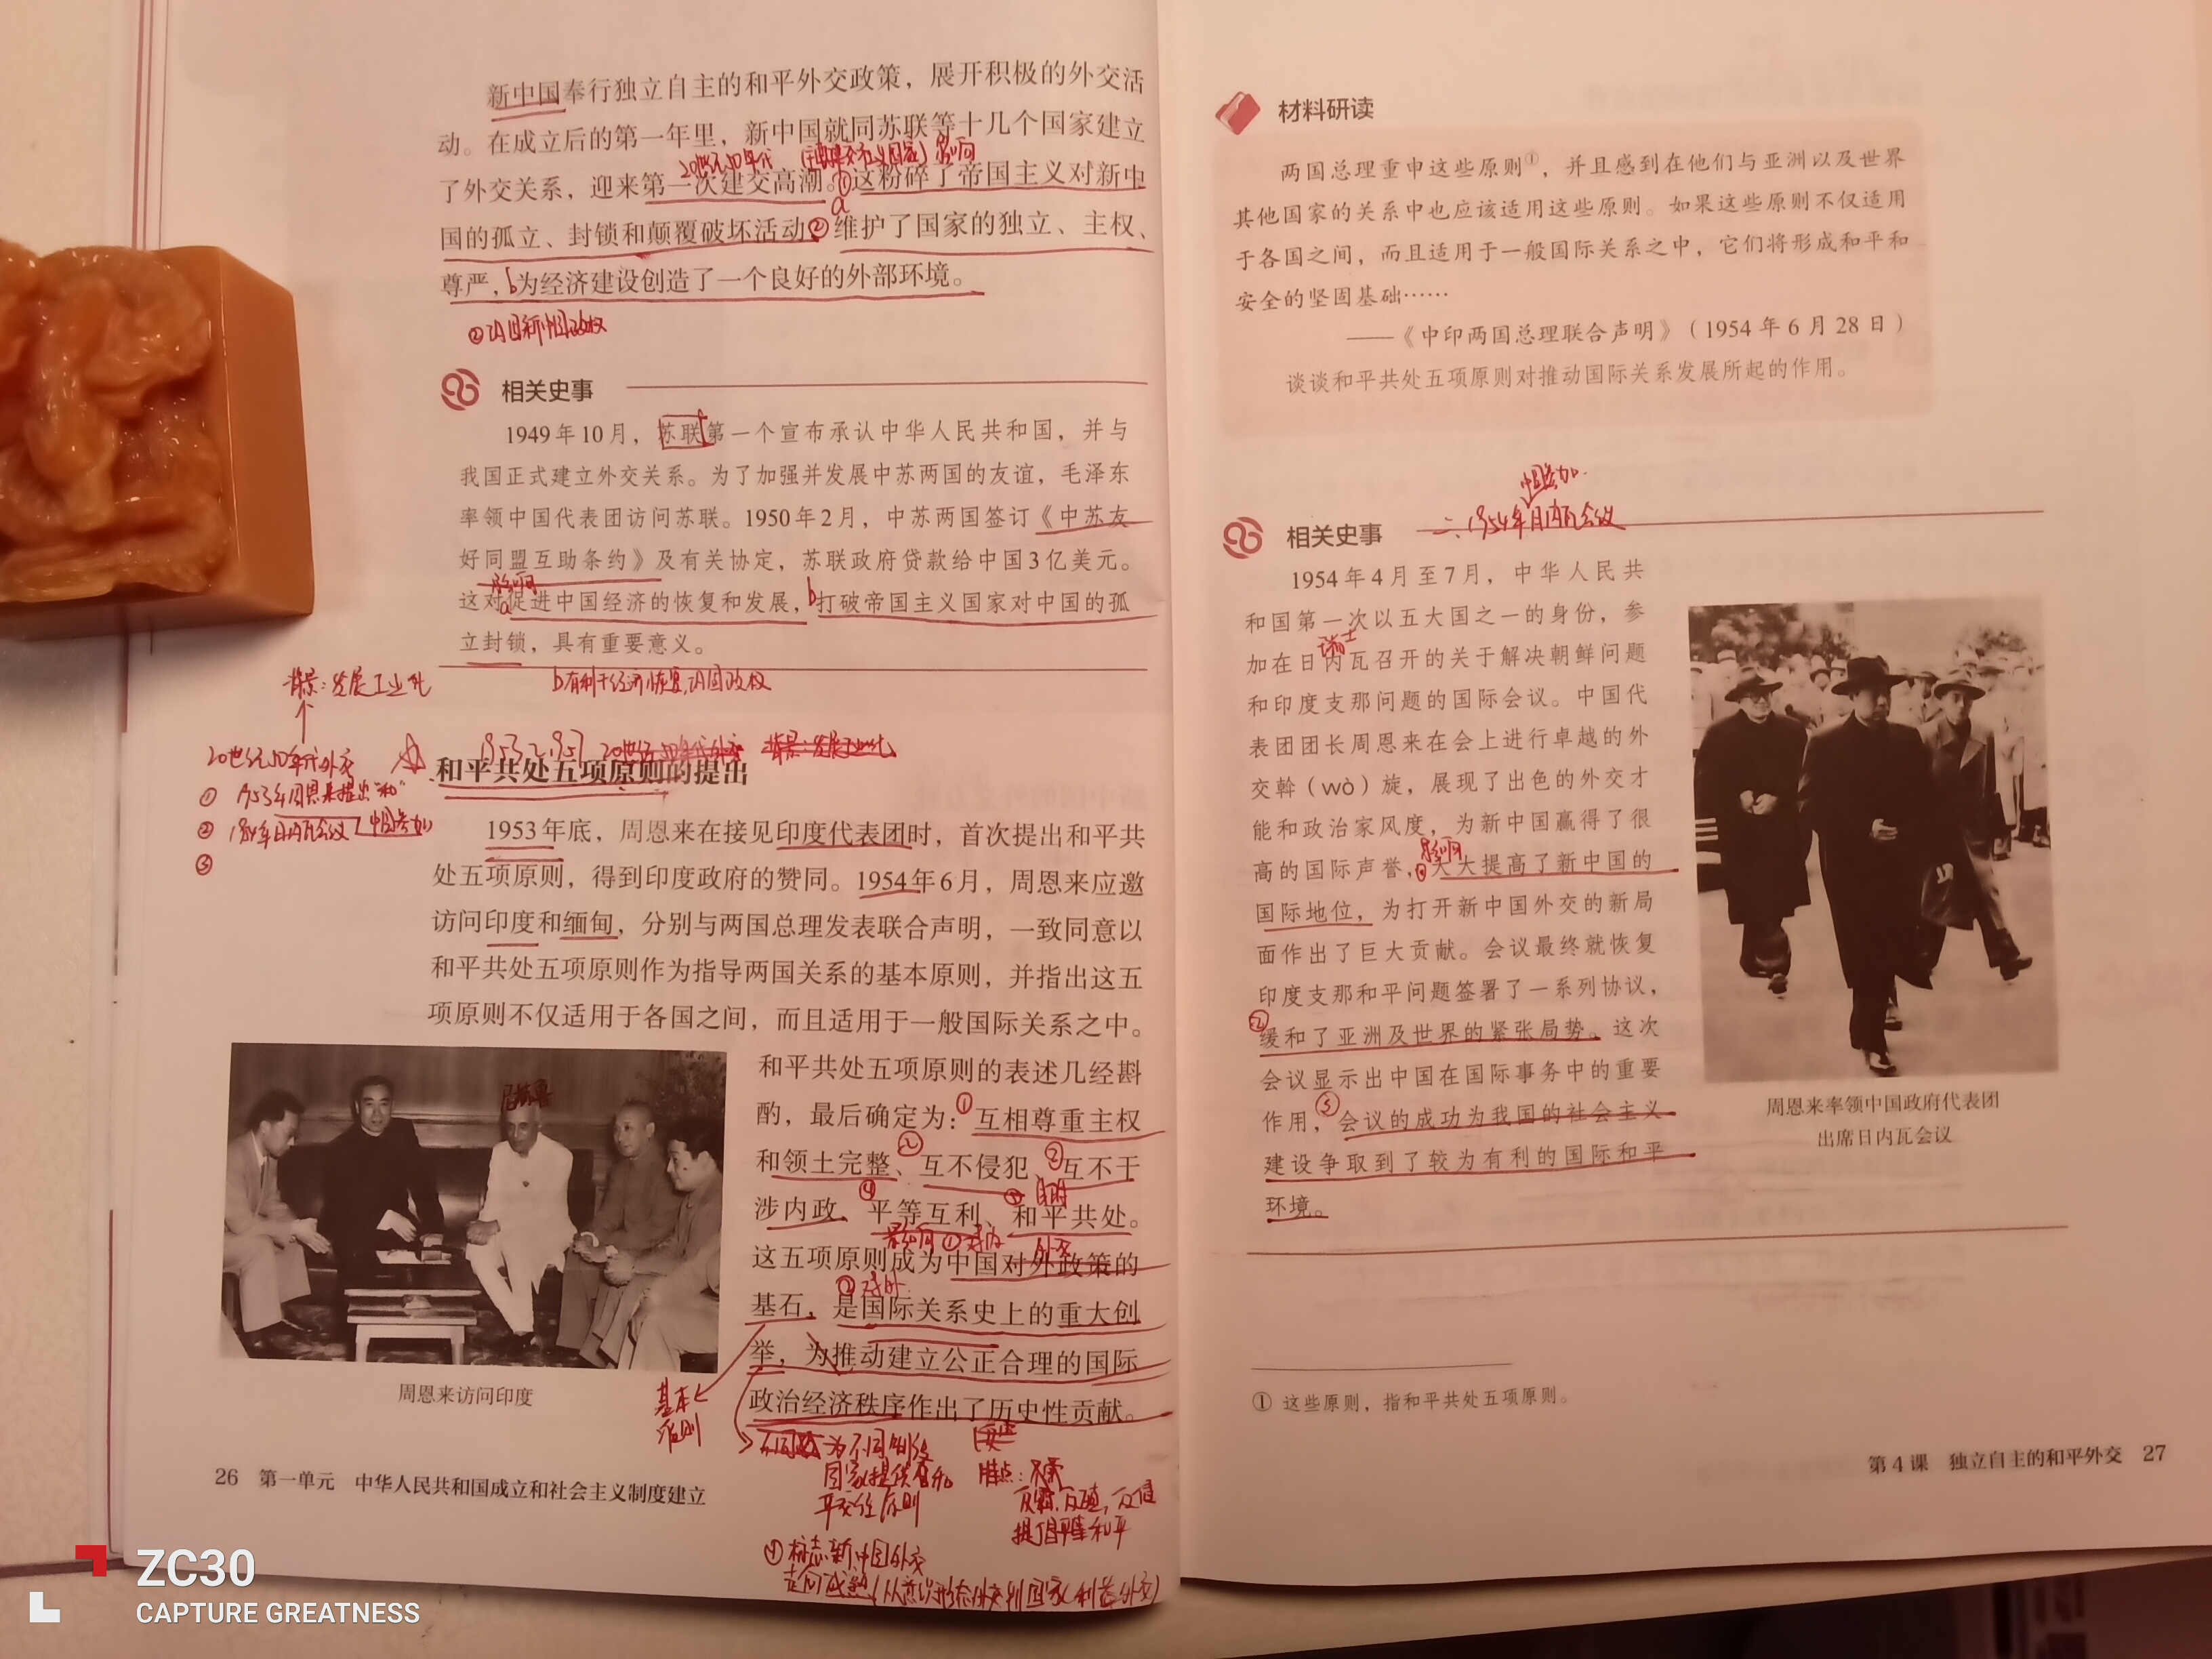 新中国奉行独立自主的和平外交政策，展开积极的外交活
动。在成立后的第一年里，新中国就同苏联等十几个国家建立
20世纪50年代
影响
了外交关系，迎来第一次建交高潮。①这粉碎了帝国主义对新中
a
国的孤立、封锁和颠覆破坏活动，②维护了国家的独立、主权、
尊严，b为经济建设创造了一个良好的外部环境。
②巩固新中国政权
相关史事
1949年10月，苏联第一个宣布承认中华人民共和国，并与
我国正式建立外交关系。为了加强并发展中苏两国的友谊，毛泽东
率领中国代表团访问苏联。1950年2月，中苏两国签订《中苏友
好同盟互助条约》及有关协定，苏联政府贷款给中国3亿美元。
影响
这对a促进中国经济的恢复和发展，b打破帝国主义国家对中国的孤
立封锁，具有重要意义。
b有利于经济恢复，巩固政权
背景：发展工业化
20世纪50年代外交
①1953年周恩来提出“和”
②1954年日内瓦会议 中国参加
③
1953~1957 20世纪50年代外交 背景：发展工业化
和平共处五项原则的提出
1953年底，周恩来在接见印度代表团时，首次提出和平共
处五项原则，得到印度政府的赞同。1954年6月，周恩来应邀
访问印度和缅甸，分别与两国总理发表联合声明，一致同意以
和平共处五项原则作为指导两国关系的基本原则，并指出这五
项原则不仅适用于各国之间，而且适用于一般国际关系之中。
和平共处五项原则的表述几经斟
酌，最后确定为：①互相尊重主权
和领土完整、②互不侵犯、②互不干
涉内政、④平等互利、⑤和平共处。
影响①对内
外交
这五项原则成为中国对外政策的
②对外
基石，是国际关系史上的重大创
举，为推动建立公正合理的国际
政治经济秩序作出了历史性贡献。
尼赫鲁
周恩来访问印度
基本
准则
为不同制度
国家提供
原则
特点：
反霸，反殖，反侵
提倡和平
④标志新中国外交
走向成熟（从意识形态外交到国家利益外交）
26 第一单元 中华人民共和国成立和社会主义制度建立
材料研读
两国总理重申这些原则①，并且感到在他们与亚洲以及世界
其他国家的关系中也应该适用这些原则。如果这些原则不仅适用
于各国之间，而且适用于一般国际关系之中，它们将形成和平和
安全的坚固基础……
——《中印两国总理联合声明》（1954年6月28日）
谈谈和平共处五项原则对推动国际关系发展所起的作用。
中国参加
二、1954年日内瓦会议
相关史事
1954年4月至7月，中华人民共
和国第一次以五大国之一的身份，参
瑞士
加在日内瓦召开的关于解决朝鲜问题
和印度支那问题的国际会议。中国代
表团团长周恩来在会上进行卓越的外
交斡（wò）旋，展现了出色的外交才
能和政治家风度，为新中国赢得了很
影响
高的国际声誉，①大大提高了新中国的
国际地位，为打开新中国外交的新局
面作出了巨大贡献。会议最终就恢复
印度支那和平问题签署了一系列协议，
②缓和了亚洲及世界的紧张局势。这次
会议显示出中国在国际事务中的重要
作用，③会议的成功为我国的社会主义
建设争取到了较为有利的国际和平
环境。
周恩来率领中国政府代表团
出席日内瓦会议
① 这些原则，指和平共处五项原则。
第4课 独立自主的和平外交 27
ZC30
CAPTURE GREATNESS